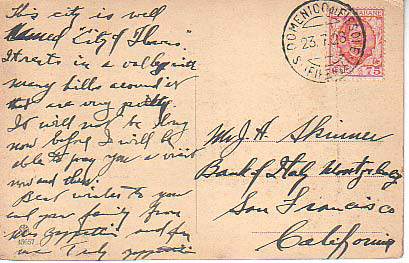 This city is well
named "City of Flowers."
It rests in a valley with
many hills around it
that are very pretty.
It will not be long
now before I will be
able to pay you a visit
now and then.
Best wishes to you
and your family from
and
Yours Truly
Mr J. H. Skinner
Bank of Italy Montgomery
San Francisco
California
S. DOMENICO DI FIESOLE
23.7.28
(FIRENZE)
75